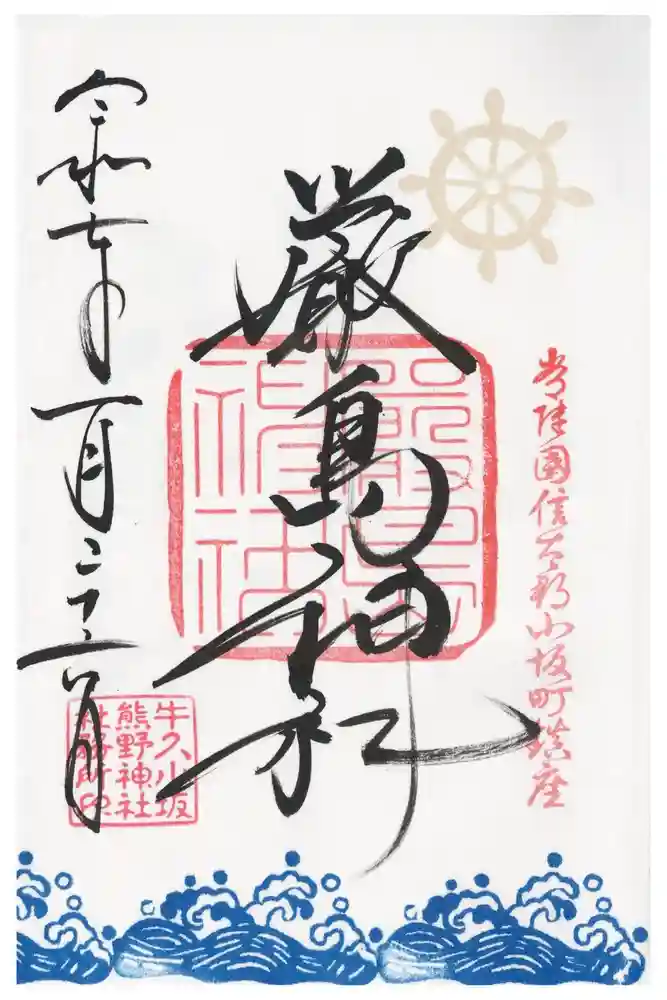 常陸國信太郡小坂町鎮座
厳島神社
嚴島
神社
令和七年一月
牛久小坂
熊野神社
社務所印